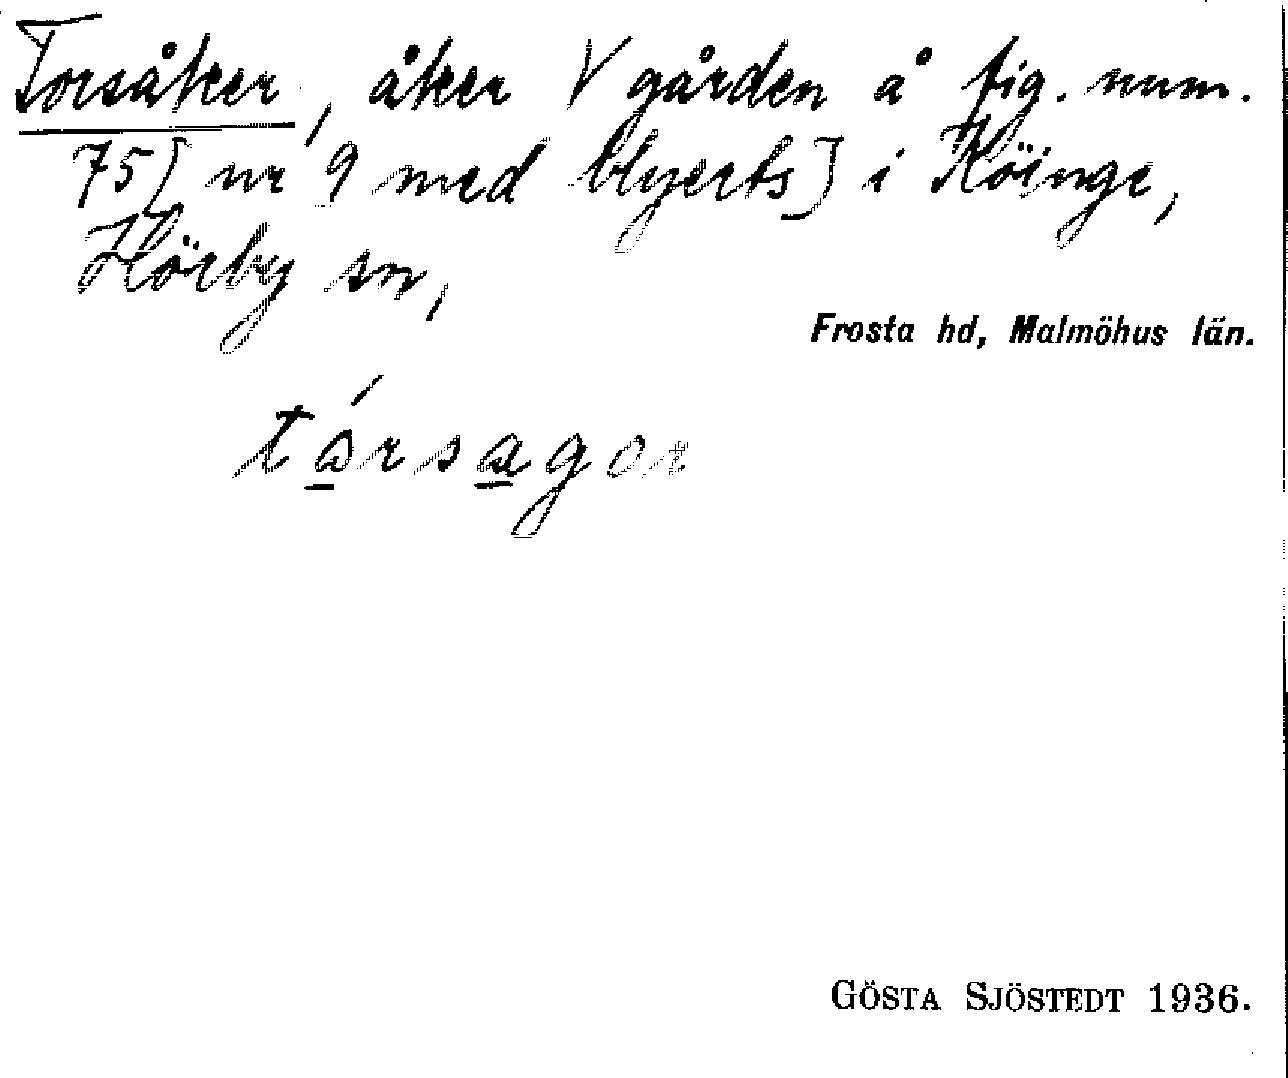 Torsåker, åker V gården å fig. num.
75[nr 9 med blyerts] i Köinge,
Hörby sn,
Frosta hd, Malmöhus län.
tårsagor
GÖSTA SJÖSTEDT 1936.